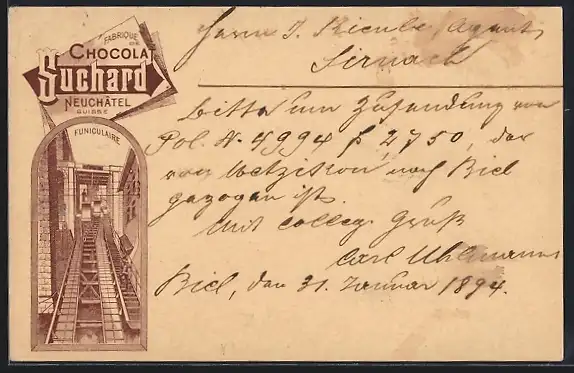 FABRIQUE
DE
CHOCOLAT
Suchard
NEUCHÂTEL
SUISSE
FUNICULAIRE
Herrn J. Kienle, Agent,
Sirnach
Bitte um Zusendung von
Pol. N. 4994 f. 2750, der
von Wetzikon nach Biel
gezogen ist.
Mit colleg. Gruß
Carl Uhlmann
Biel, den 31. Januar 1894.